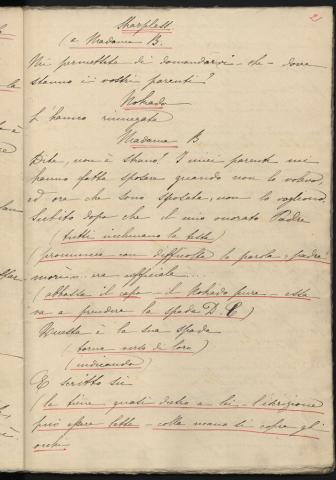 2
Sharpless
(a Madama B.
Mi permettete di domandarvi - che - dove
stanno i vostri parenti?
Nokado
L'hanno rinnegata
Madama B.
Dite, non è strano! I miei parenti mi
hanno fatto sposare quando non lo volevo,
ed ora che sono sposata, non lo vogliono
Subito dopo che il mio onorato Padre
tutti inchinano la testa
(pronuncia con difficoltà la parola - padre
morì - era ufficiale...
(abbassa il capo - il Nokado pure - essa
va a prendere la spada D. C)
Questa è la sua spada
(torna verso di loro)
(indicando)
È scritto su
(la tiene quasi dietro a lei - l'iscrizione
può essere letta - colla mano si copre gli
occhi